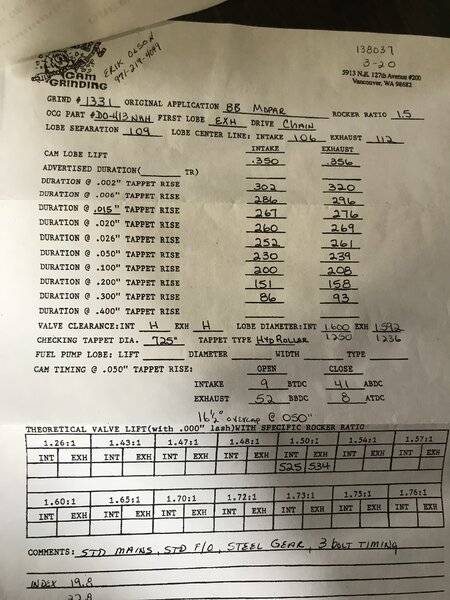 ERIK OLSON
971-219-4097
CAM
GRINDING
138037
3-20
5913 N.E. 127th Avenue #200
Vancouver, WA 98682
GRIND # 1331 ORIGINAL APPLICATION BB MOPAR ROCKER RATIO 1.5
OCG PART # DO-413 NBH FIRST LOBE EXH DRIVE CHAIN
LOBE SEPARATION 109 LOBE CENTER LINE: INTAKE 106 EXHAUST 112
INTAKE EXHAUST
CAM LOBE LIFT .350 .356
ADVERTISED DURATION(____ TR)
DURATION @ .002" TAPPET RISE 302 320
DURATION @ .006" TAPPET RISE 286 296
DURATION @ .015" TAPPET RISE 267 276
DURATION @ .020" TAPPET RISE 260 269
DURATION @ .026" TAPPET RISE 252 261
DURATION @ .050" TAPPET RISE 230 239
DURATION @ .100" TAPPET RISE 200 208
DURATION @ .200" TAPPET RISE 151 158
DURATION @ .300" TAPPET RISE 86 93
DURATION @ .400" TAPPET RISE
VALVE CLEARANCE:INT H EXH H LOBE DIAMETER:INT 1.600 EXH 1.592
CHECKING TAPPET DIA. .725" TAPPET TYPE HYD ROLLER 1250 1236
FUEL PUMP LOBE: LIFT DIAMETER WIDTH TYPE
CAM TIMING @ .050" TAPPET RISE: OPEN CLOSE
INTAKE 9 BTDC 41 ABDC
EXHAUST 52 BBDC 8 ATDC
16½° OVERLAP @ .050"
THEORETICAL VALVE LIFT(with .000" lash)WITH SPECIFIC ROCKER RATIO
1.26:1 1.43:1 1.47:1 1.48:1 1.50:1 1.54:1 1.57:1
INT EXH INT EXH INT EXH INT EXH INT EXH INT EXH INT EXH
525 534
1.60:1 1.65:1 1.70:1 1.72:1 1.73:1 1.75:1 1.76:1
INT EXH INT EXH INT EXH INT EXH INT EXH INT EXH INT EXH
COMMENTS: STD MAINS, STD F/O, STEEL GEAR, 3 BOLT TIMING
INDEX 19.8
22.8